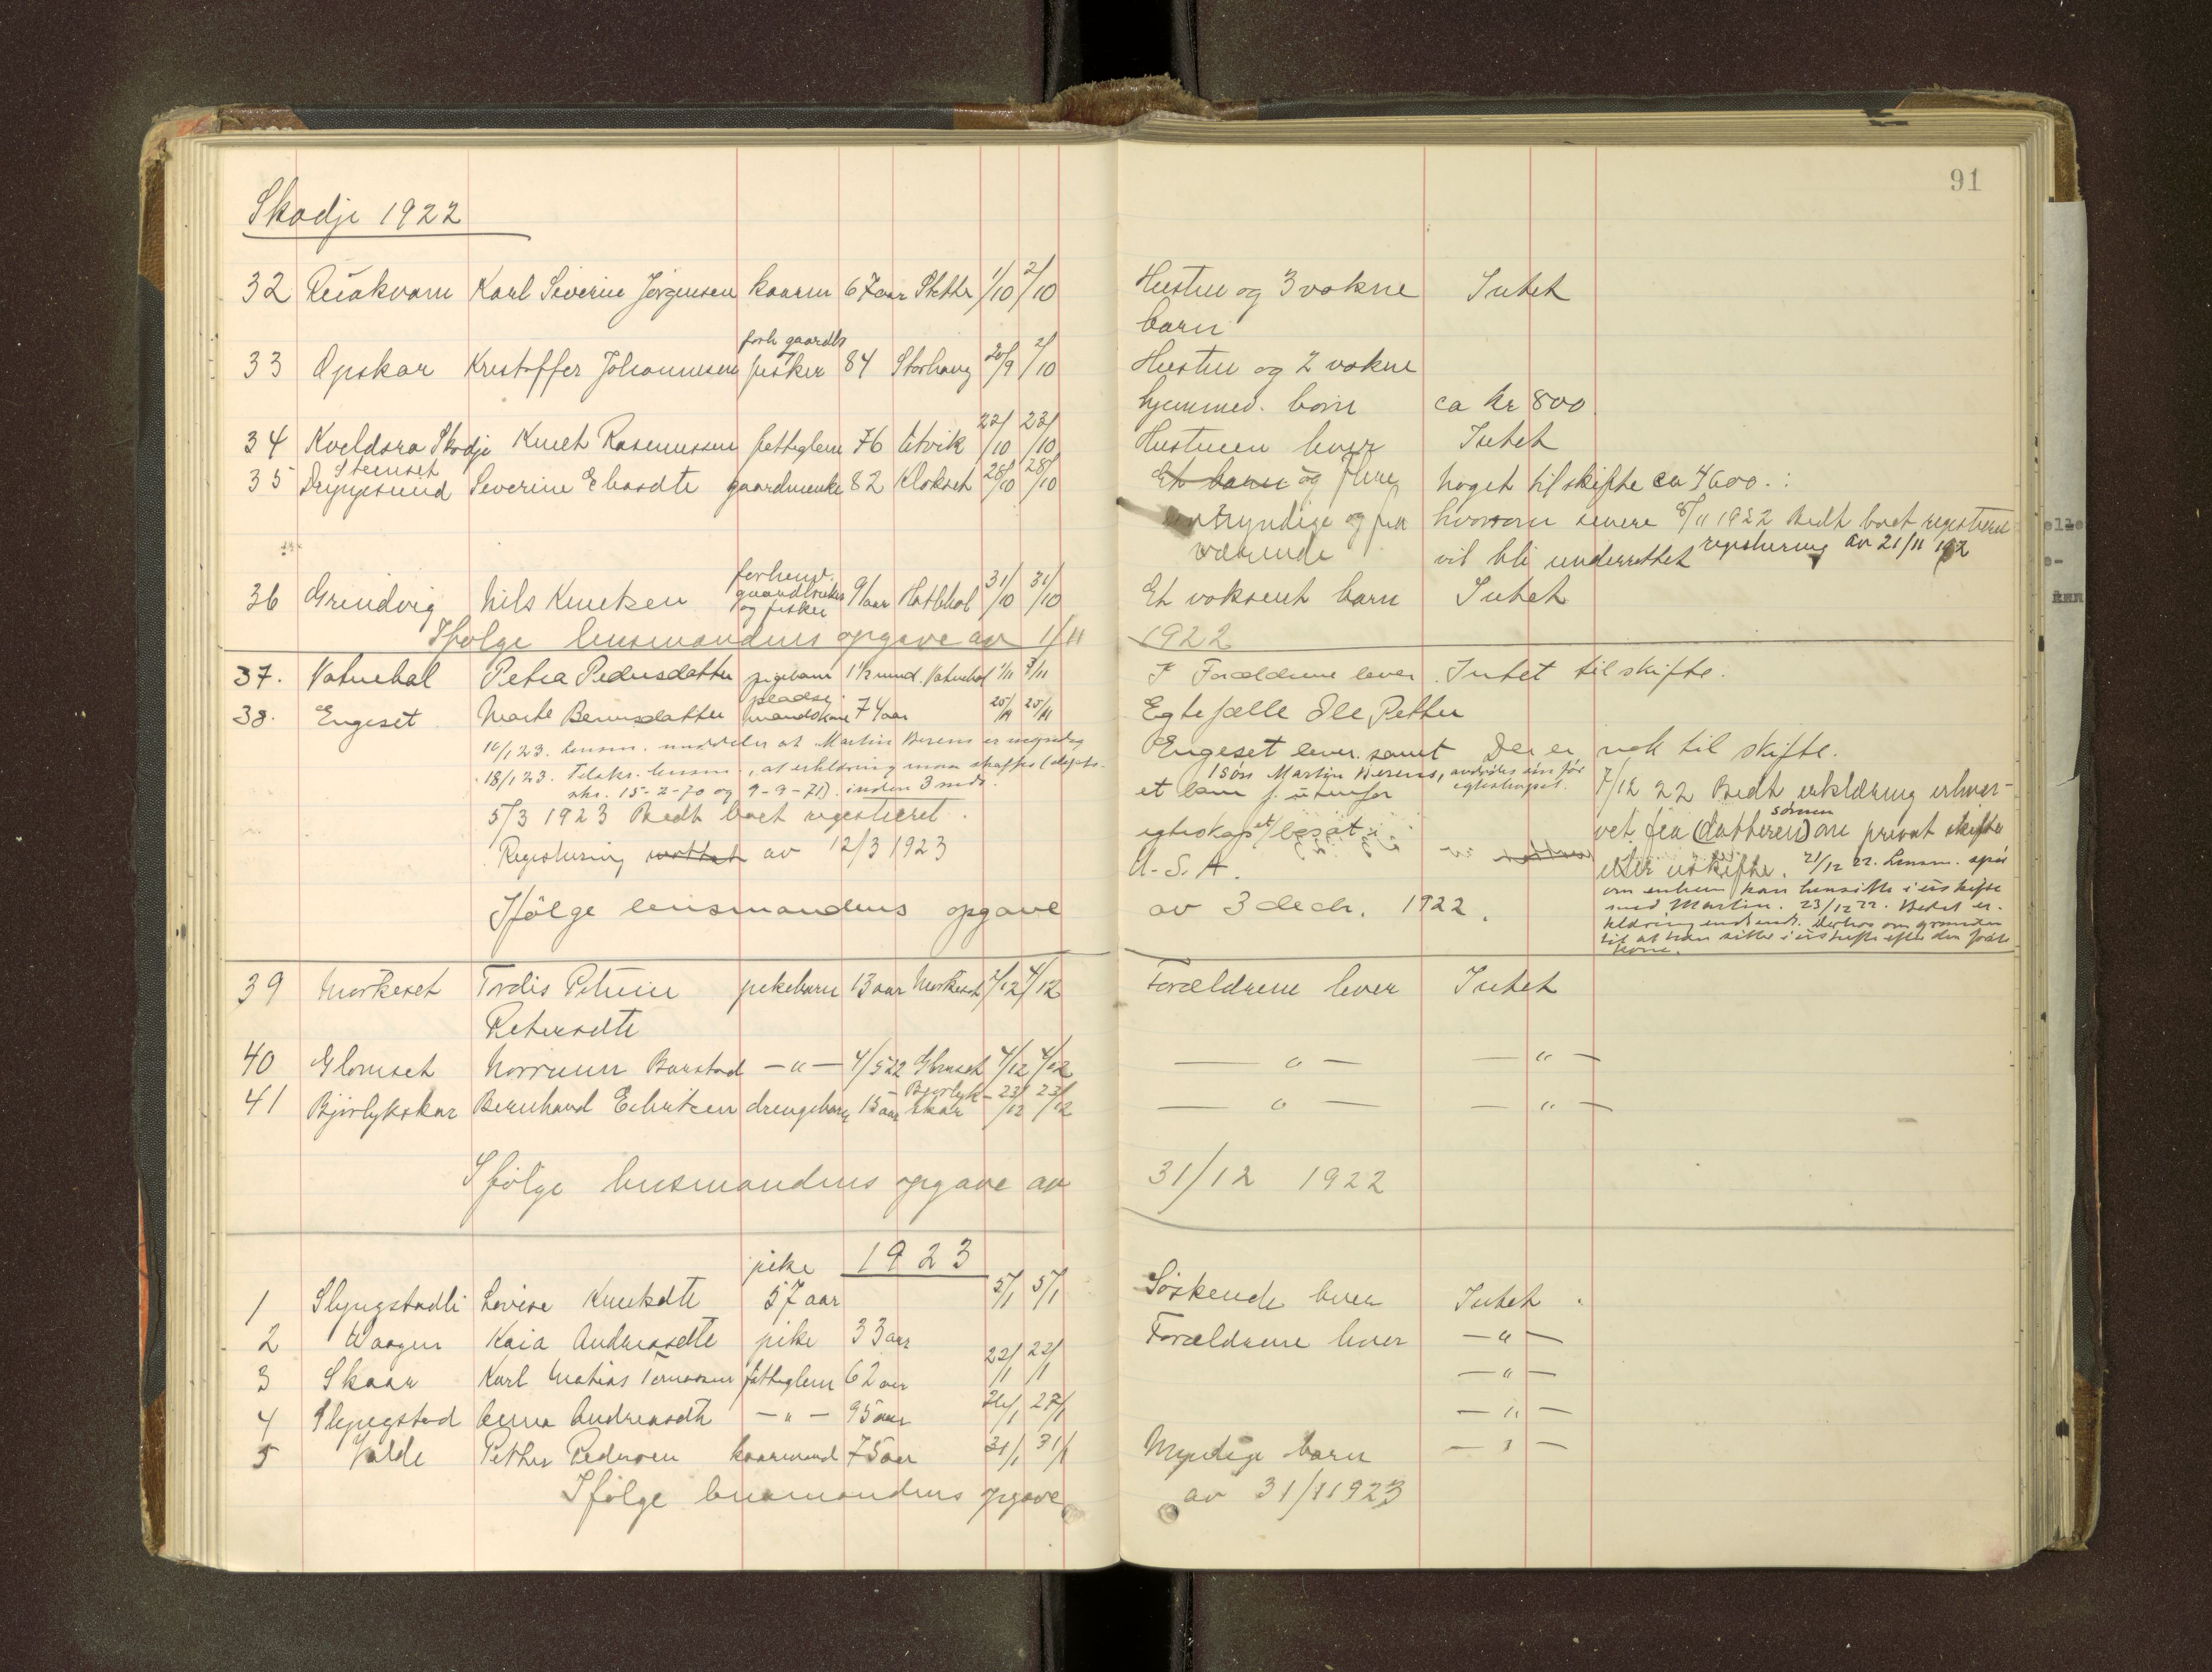 91
Skodje 1922
32 Karl Severin Jørgensen kaarm 67 aar 1/10 2/10 Hustru og 3 vokne Intet
barn
forh gaardb
33 Opskar Kristoffer Johannesen fisker 84 Storhaug 20/9 2/10 Hustru og 2 vokne
hjemmev. born ca kr 800
34 Kveldsra Skodje Knut Rasmussen fattiglem 76 Utvik 22/10 23/10 Hustruen lever Intet
Steenset
35 Severine E bardtr gaardmenke 82 Klokset 28/10 28/10 Et barn og flere noget til skifte ca 4600.
myndige og fra hvorom senere 8/11 1922 Bedt boet registreret
værende vil bli underrettet registrering av 21/11 1922
forhenv.
36 Grindvig Nils Knutsen gaardbruker 91 aar Hatlehol 31/10 31/10 Et voksent barn Intet
og fisker
Ifølge lensmandens opgave av 1/11 1922
37. Vatnehol Petra Pedersdatter pigebarn 1 1/2 mnd. Vatnehol 1/11 3/11 Forældrene lever. Intet til skifte.
pladse
38. Engeset Marte Berensdatter mandskone 74 aar 25/11 25/11 Egtefælle Ole Petter
16/1 23. Lensm. meddeler at Martin Berens er myndig Engeset lever samt Der er nok til skifte.
18/1 23. Tilskr. lensm., at erklæring maa skaffes 1 søn Martin Berens, avlet før egteskapet.
skr. 15-2-70 og 9-9-71) inden 3 mdr. et barn f. utenfor 7/12 22 Bedt erklæring erhver-
5/3 1923 Bedt boet registreret. egteskapet bosat i vet fra (datteren) sønnen om privat skifte
Registrering mottat av 12/3 1923 U.S.A. eller uskifte. 21/12 22. Lensm. spør
om enkem kan hensitte i uskifte
Ifölge lensmandens opgave av 3 decbr. 1922. med Martin. 23/12 22. Bedt er-
klæring indsendt. Derhos om grunden
til at han sitter i uskifte efter den første
kone.
39 Mørkeset Tordis Petrine pikebarn 13 aar Mørkeset 2/12 4/12 Forældrene lever Intet
Petersdtr
40 Glomset Norrunn Barstad — " — 4/5 22 Glomset 4/12 4/12 — " — — " —
41 Bjørlykskar Bernhard Edvitsen drengebarn 15 aar Bjørlykskar 23/12 23/12 — " — — " —
Ifölge lensmandens opgave av 31/12 1922
1923
1 Slyngstadli Lovise Knutsdtr pike 57 aar 5/1 5/1 Søskende lever Intet
2 Waagen Kaia Andreasdtr pike 33 aar Forældrene lever — " —
3 Skaar Karl Matias Tomassen fattiglem 62 aar 22/1 22/1 — " —
4 Slyngstad Anna Andreasdtr — " — 95 aar 26/1 27/1 — " —
5 Valde Petter Pedersen kaarmand 75 aar 31/1 31/1 Myndige barn — " —
Ifølge lensmandens opgave av 31/1 1923